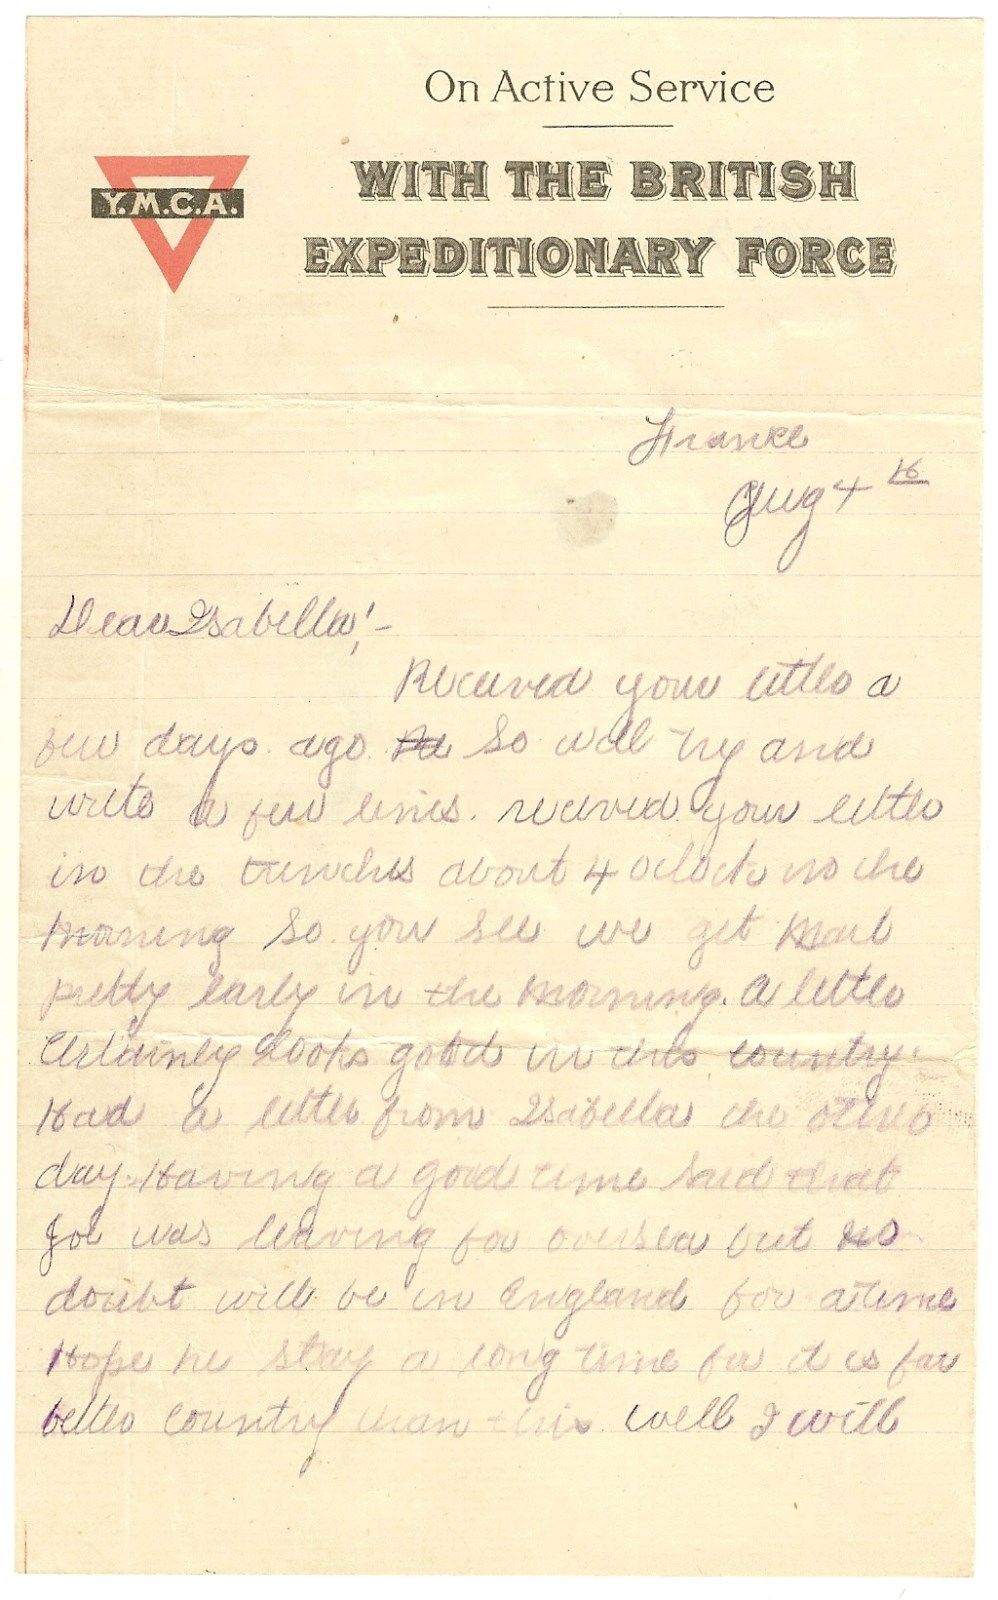 On Active Service
WITH THE BRITISH
EXPEDITIONARY FORCE
Y.M.C.A.
France
Aug 4th
Dear Isabella!-
Received your letter a
few days ago. So will try and
write a few lines. received your letter
in the trenches about 4 oclock in the
morning So you see we get mail
pretty early in the morning. A letter
certainly looks good in this country.
Had a letter from Isabella the other
day. Having a good time said that
Joe was leaving for oversea but no
doubt will be in England for a time
Hope he stay a long time for it is far
better country than this. well I will